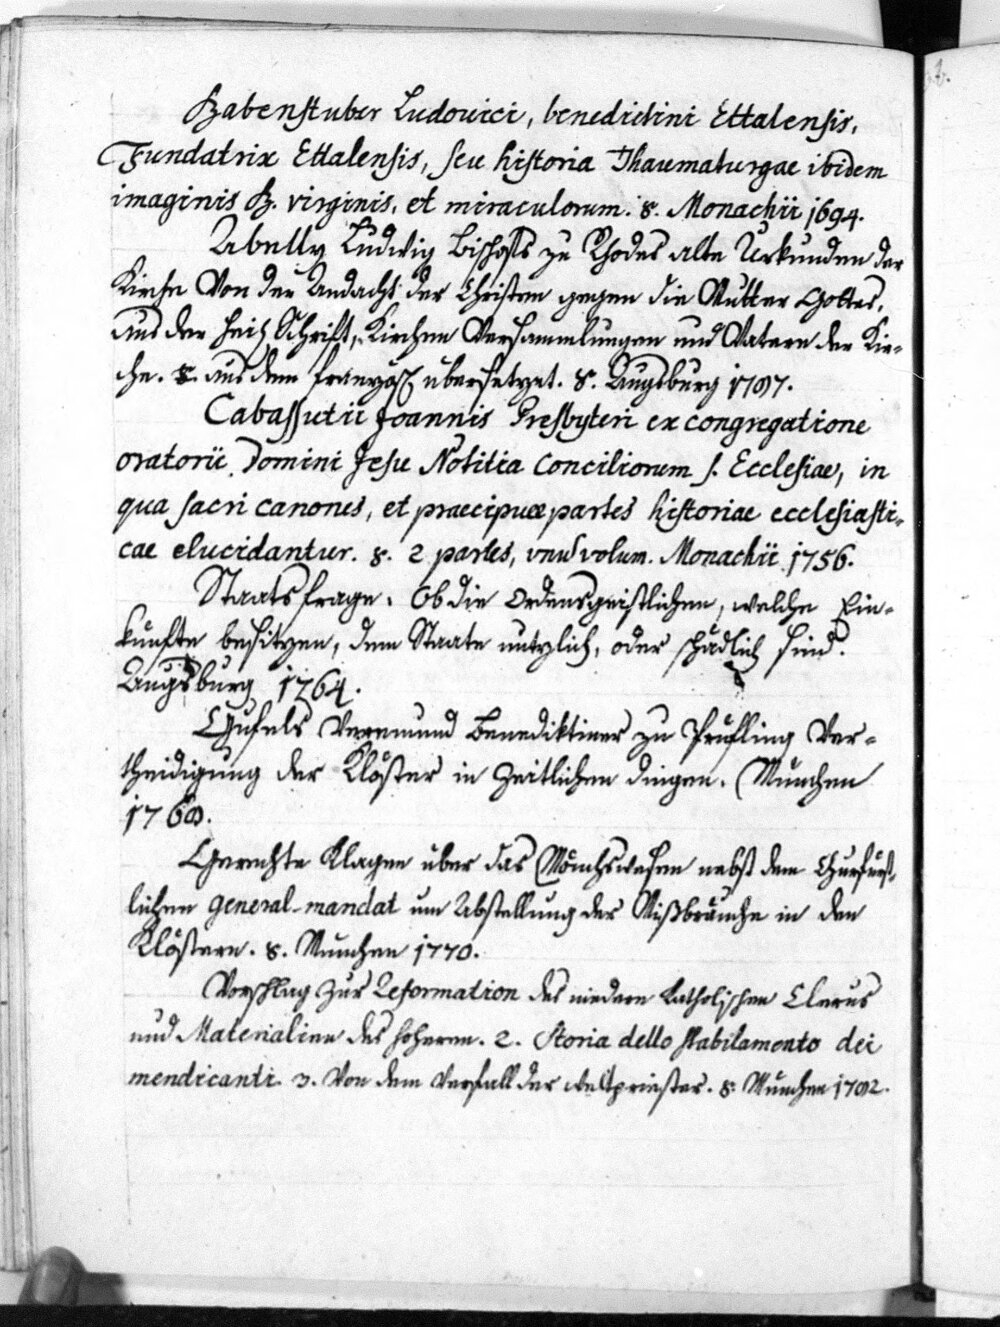 Babenstuber Ludovici, benedictini Ettalensis,
Fundatrix Ettalensis, seu historia Thaumaturgae ibidem
imaginis B. virginis, et miraculorum. 8. Monachii 1694.
Abelly Ludwig Bischoffs zu Rhodes alte Urkunden der
Kirche von der Andacht der Christen gegen die Mutter Gottes,
aus der heil. Schrift, Kirchen Versammlungen und Vätern der Kir-
che. 8. aus dem französ. übersetzet. 8. Augsburg
Cabassutii Joannis Presbyteri ex congregatione
oratorii Domini Jesu Notitia Conciliorum s. Ecclesiae, in
qua sacri canones, et praecipuae partes historiae ecclesiasti-
cae elucidantur. 8. 2 partes, unu volum. Monachii 1756.
Staatsfrage. Ob die Ordensgeistlichen, welche Ein-
künfte besitzen, dem Staate nützlich, oder schädlich sind.
Augsburg 1764.
Gufels Veremund Benediktiner zu Prüfling Ver-
theidigung der Klöster in zeitlichen dingen. München
1768.
Gerechte Klagen über das Mönchswesen nebst dem Churfürst-
lichen general-mandat um Abstellung der Mißbräuche in den
Klöstern. 8. München 1770.
Vorschlag zur Reformation des niedern katholischen Clerus
und Materialien des höhern. 2. Storia dello stabilamento dei
mendicanti. 3. Von dem Verfall der weltpriester. 8. München